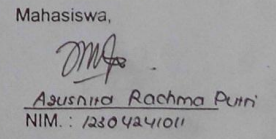 Mahasiswa,
Agusnita Rachma Putri
NIM. : 12304241011